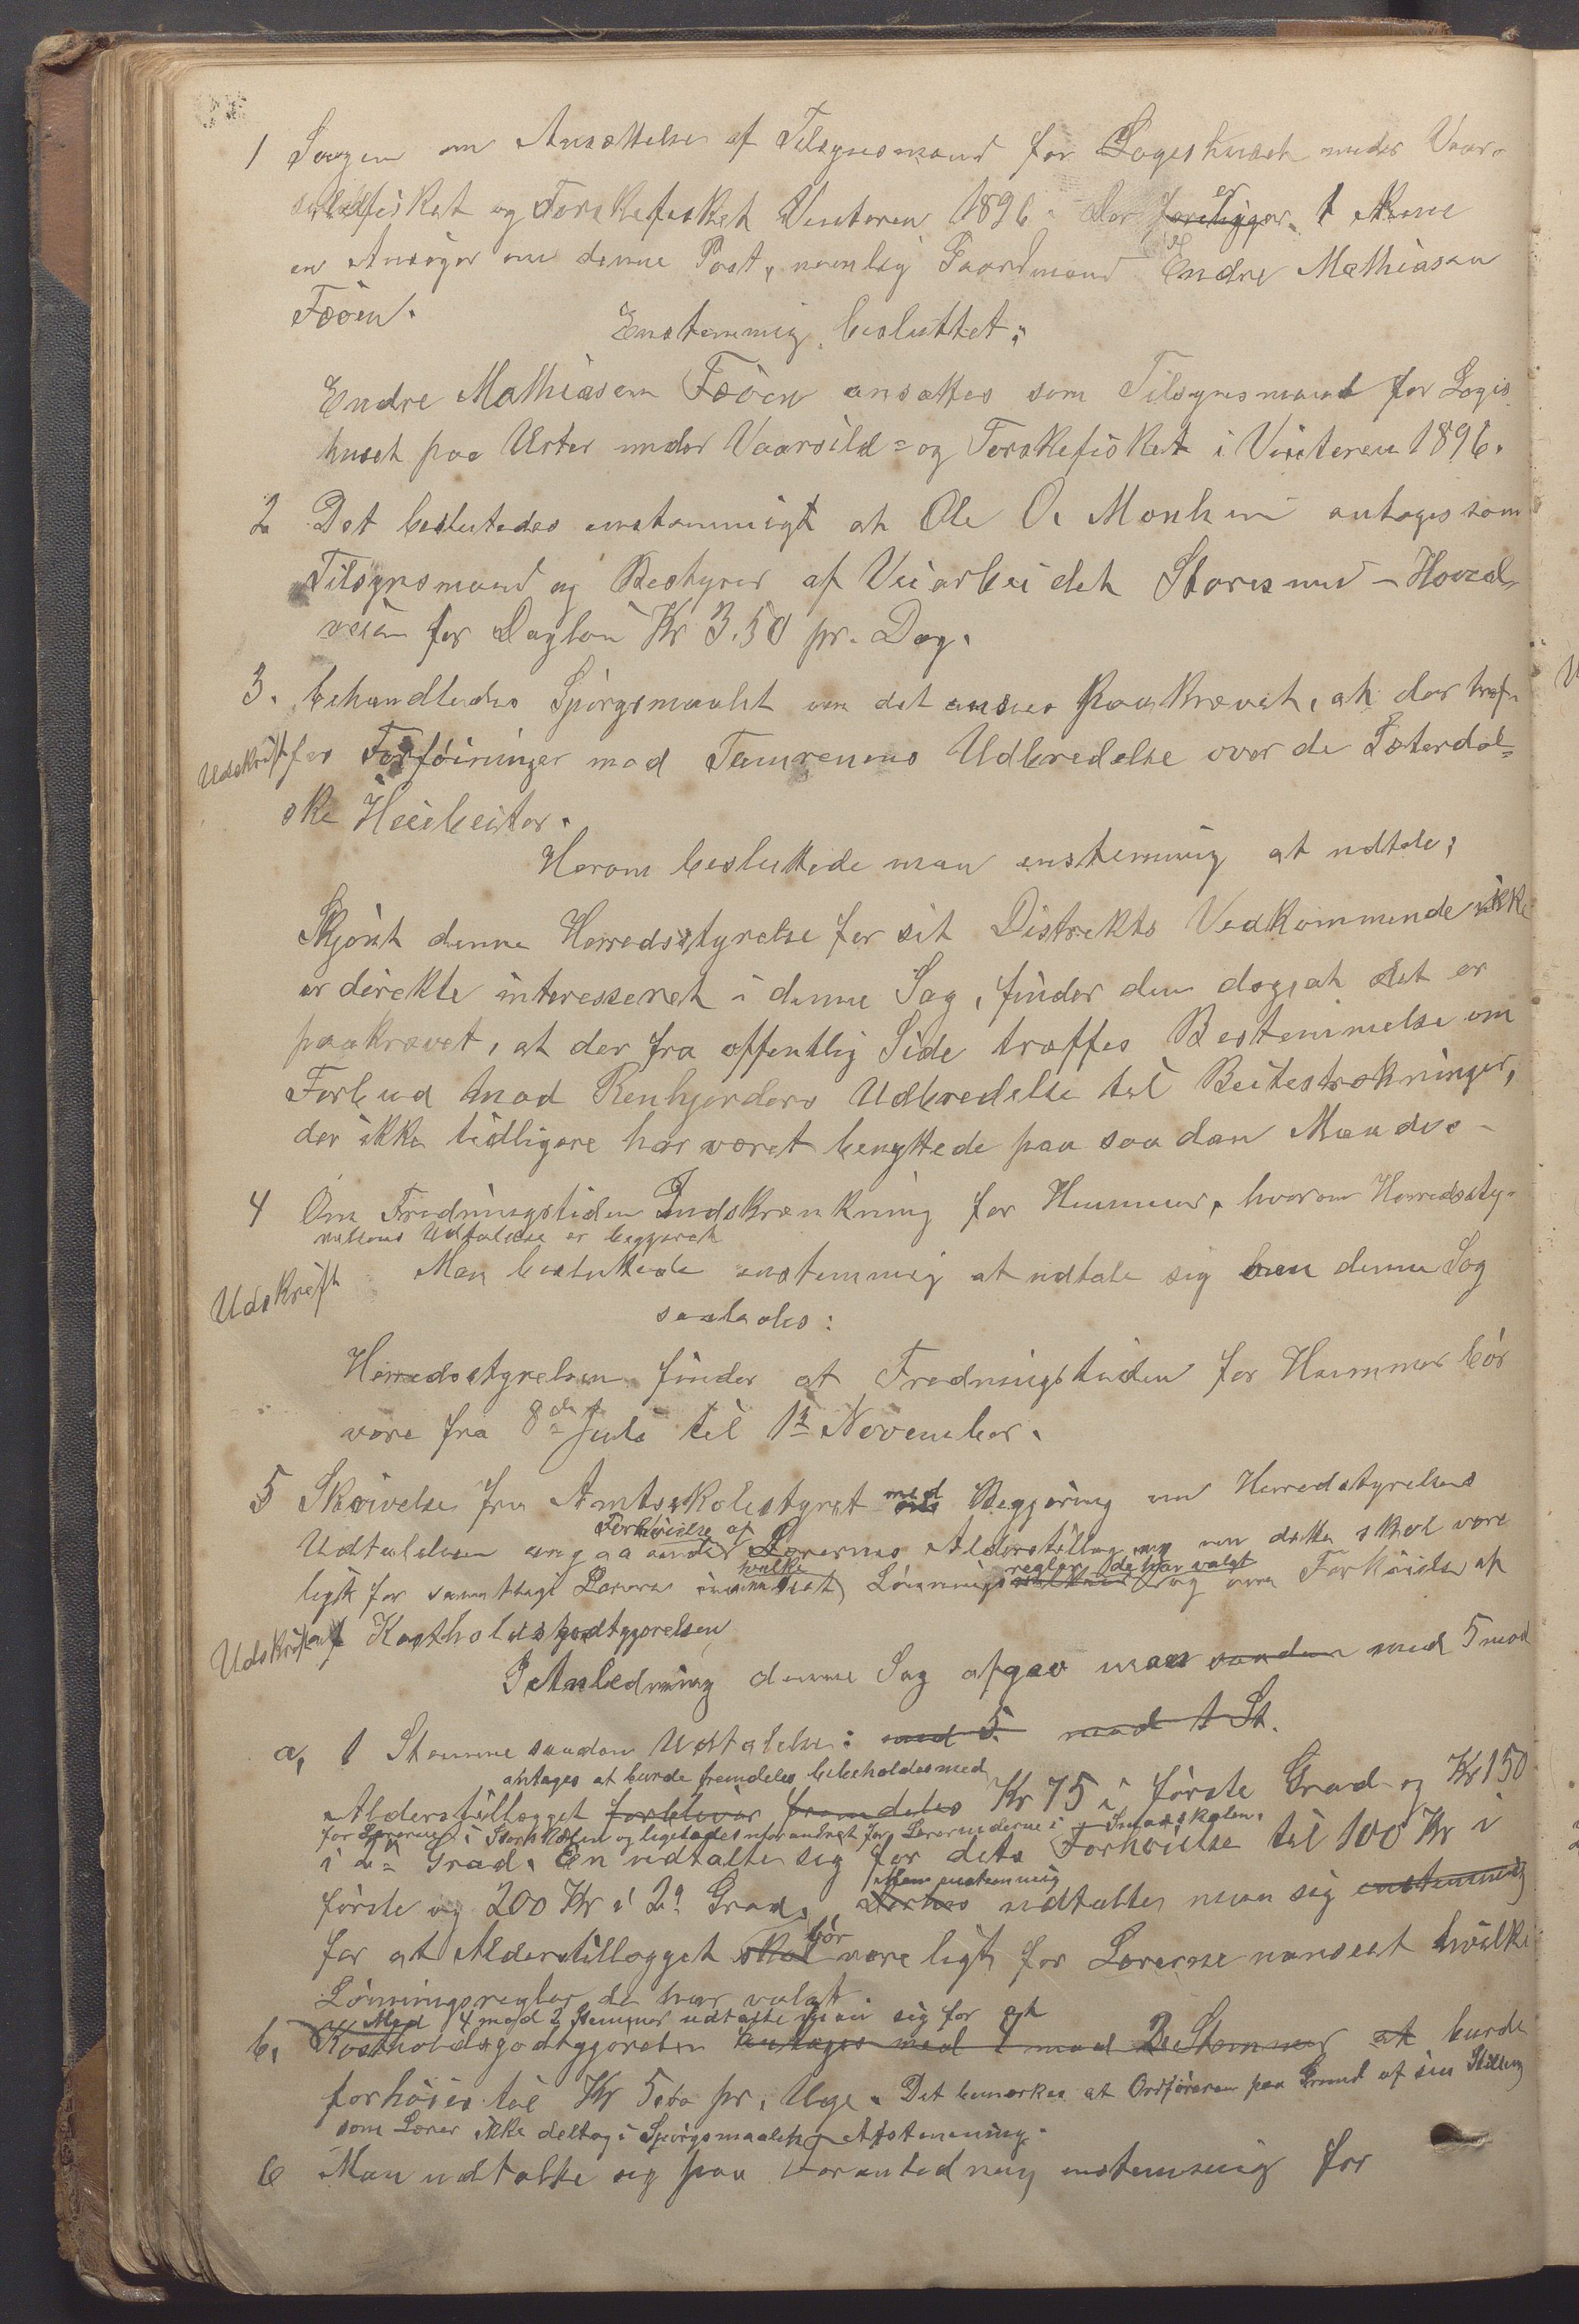 1 Sagen om Ansættelse af Tilsynsmand for Logishuset under Vaar-
sildfisket og Torskefisket Vinteren 1896. Der foreligger er 1 Mand
en Ansøger om denne Post, nemlig Gaardmand Endre Mathiasen
Fæøen.
Enstemmig besluttet:
Endre Mathiasen Fæøen ansættes som Tilsynsmand for Logis
huset paa Urter under Vaarsild- og Torskefisket i Vinteren 1896.
2 Det besluttedes enstemmigt at Ole O. Munkvi antages som
Tilsynsmand og Bestyrer af Veiarbeidet Storesund - Hovdal
veien for Dagløn Kr 3.50 pr. Dag.
3. behandledes Spørgsmaalet om det ansees paakrævet, at der træf-
Udskrift fes Forføininger mod Tamrenens Udbredelse over de Sæterdal-
ske Heiebeiter.
Herom besluttede man enstemmig at udtale:
Skjønt denne Herredsstyrelse for sit Distrikts Vedkommende ikke
er direkte interesseret i denne Sag, finder den dog, at det er
paakrævet, at der fra offentlig Side træffes Bestemmelse om
Forbud mod Renhjorders Udbredelse til Beitestrækninger,
der ikke tidligere har været benyttede paa saadan Maade.
4 Om Fredningstiden Indskrænkning for Hummer, hvorom Herredssty-
relsens Udtalelse er begjæret
Udskrift Man besluttede enstemmig at udtale sig om denne Sag
saaledes:
Herredsstyrelsen finder at Fredningstiden for Hummer bør
være fra 8de Juli til 1ste November.
5 Skrivelse fra Amtsskolestyret med Begjæring om Herredsstyrelsens
Forhøielse af
Udtalelse angaaende Lærernes Alderstillæg og om dette skal være
hvilke regler de har valgt
ligt for samtlige Lærere uanseet Lønnings og om Forhøielse af
Udskrift Kostholdsgodtgjørelsen
I Anledning denne Sag afgav man saadan med 5 mod
a, 1 Stemme saadan Udtalelse: med 5 mod 1 St.
antages at burde fremdeles bibeholdes med
Alderstillægget forbliver fremdeles Kr 75 i første Grad og Kr 150
for Lærerne i Storskolen og ligeledes uforandret for Lærerinderne i Smaaskolen.
i 2den Grad. En udtalte sig for dets Forhøielse til 100 Kr i
Men enstemmig
første og 200 Kr i 2den Grad, udtalte man sig enstemmig
bør
for at Alderstillægget skal være ligt for Lærerne uanseet hvilke
Lønningsregler de har valgt
Med 4 mod 2 Stemmer udtalte man sig for at
b, Kostholdsgodtgjørelsen antages med 1 mod 2 Stemmer at burde
forhøies til Kr 5,60 pr. Uge. Det bemærkes at Ordføreren paa Grund af sin Stilling
som Lærer ikke deltog i Spørgsmaalets Afstemning.
6 Man udtalte sig paa Foranledning enstemmig for